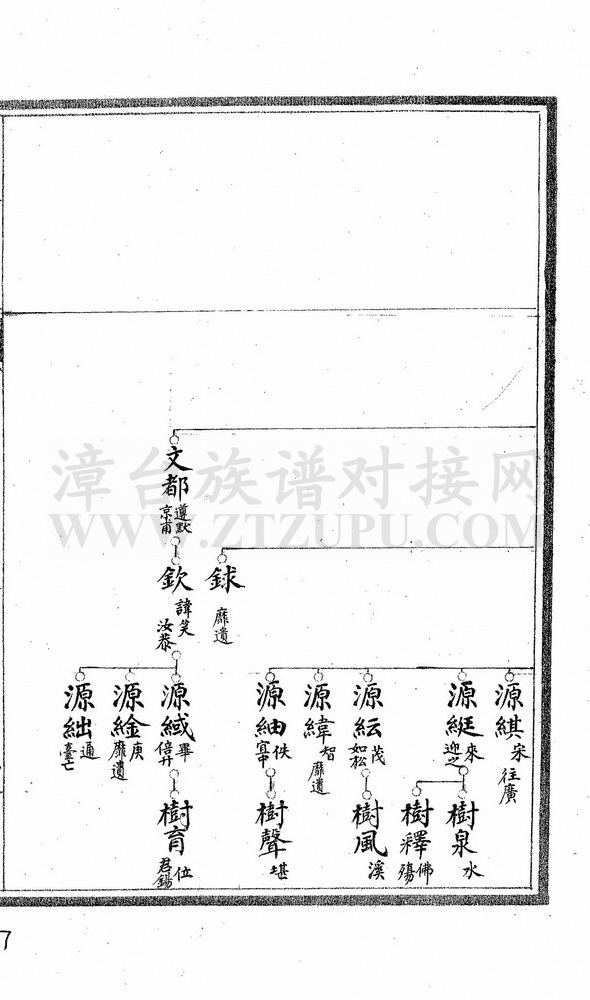 文都
遵默
京甫
銶
靡遺
欽
諱笑
汝恭
源綨
宋
往廣
源綎
來
迎之
源紜
茂
如松
源緯
智
靡遺
源紬
佚
宜中
源緎
畢
倍升
源䋮
庚
靡遺
源絀
通
臺亡
樹泉
水
樹釋
佛
殤
樹風
溪
樹聲
堪
樹育
位
君錫
漳台族谱对接网
WWW.ZTZUPU.COM
7